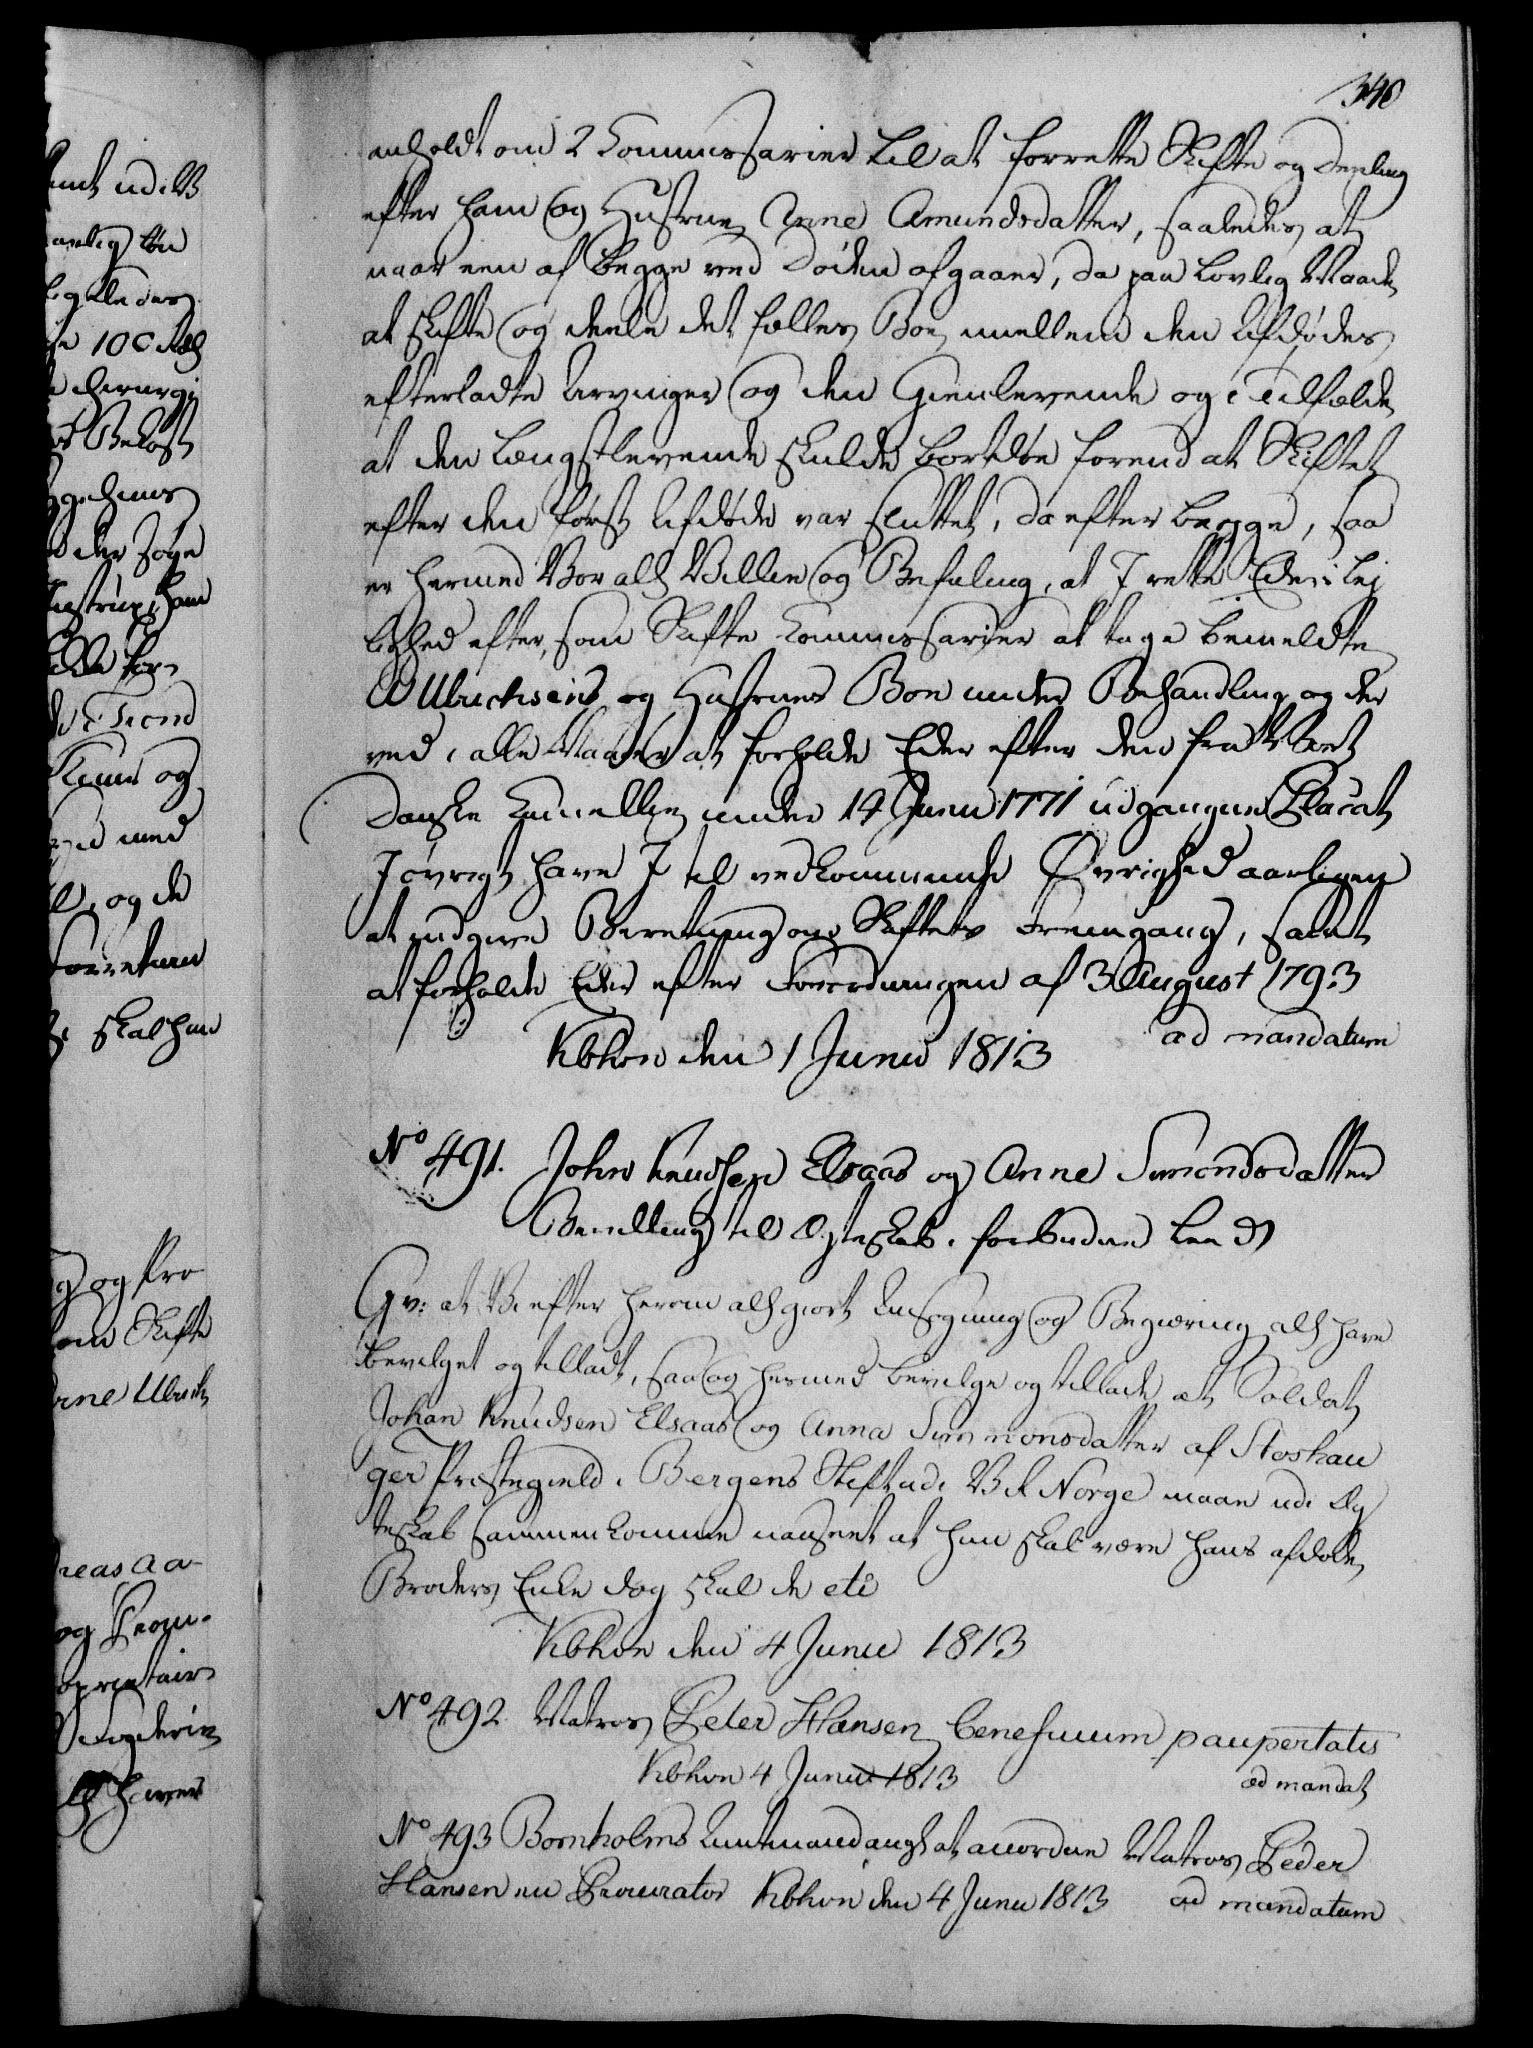 340
anholdt om 2 Commissarier til at forrette Skifte og Deeling
efter ham og Hustrue Anne Amundsdatter, saaledes at
naar een af begge ved Døden afgaaer, da paa lovlig Maade
at skifte og deele det fælles Boe imellem den Afdødes
efterladte Arvinger og den Gienlevende og i Tilfælde
at den Længstlevende skulde bortdøe forend at Skiftet
efter den først Afdøde var sluttet, da efter begge, saa
er hermed Vor allr Villie og Befaling, at I rette Eder i Lej
lighed efter, som Skifte Commissarier at tage bemeldte
Ulrichsens og Hustrues Boe under Behandling og der
ved i alle Maader at forholde Eder efter den fra
Danske Cancellie under 14 Junii 1771 udgangne Placat
I øvrigt have I til vedkommende Øvrighed aarligen
at indgive Beretning om Skiftets Fremgang, samt
at forholde Eder efter Forordningen af 3 August 1793
Kbhvn den 1 Junii 1813 ad mandatum
No 491. Johan Knudsen Elsaas og Anne Simonsdatter
Bevilling til Ægteskab i forbudne Leed
Gv: at Vi efter herom allr giort Ansøgning og Begiæring allr have
bevilget og tilladt, saa og hermed bevilge og tillade at Soldat
Johan Knudsen Elsaas og Anna Simmonsdatter af Skoshau
ger Præstegield i Bergens Stift udi Vt Rige Norge maae udi Æg
teskab sammenkomme uanseet at hun skal være hans afdøde
Broders Enke dog skal de etc
Kbhvn den 4 Junii 1813
No 492. Matros Peter Hansen beneficium paupertatis
Kbhvn 4 Junii 1813 ad mandat
No 493 Bornholms Amtmand angt at anordne Matros Peder
Hansen en Procurator Kbhvn den 4 Junii 1813 ad mandatum